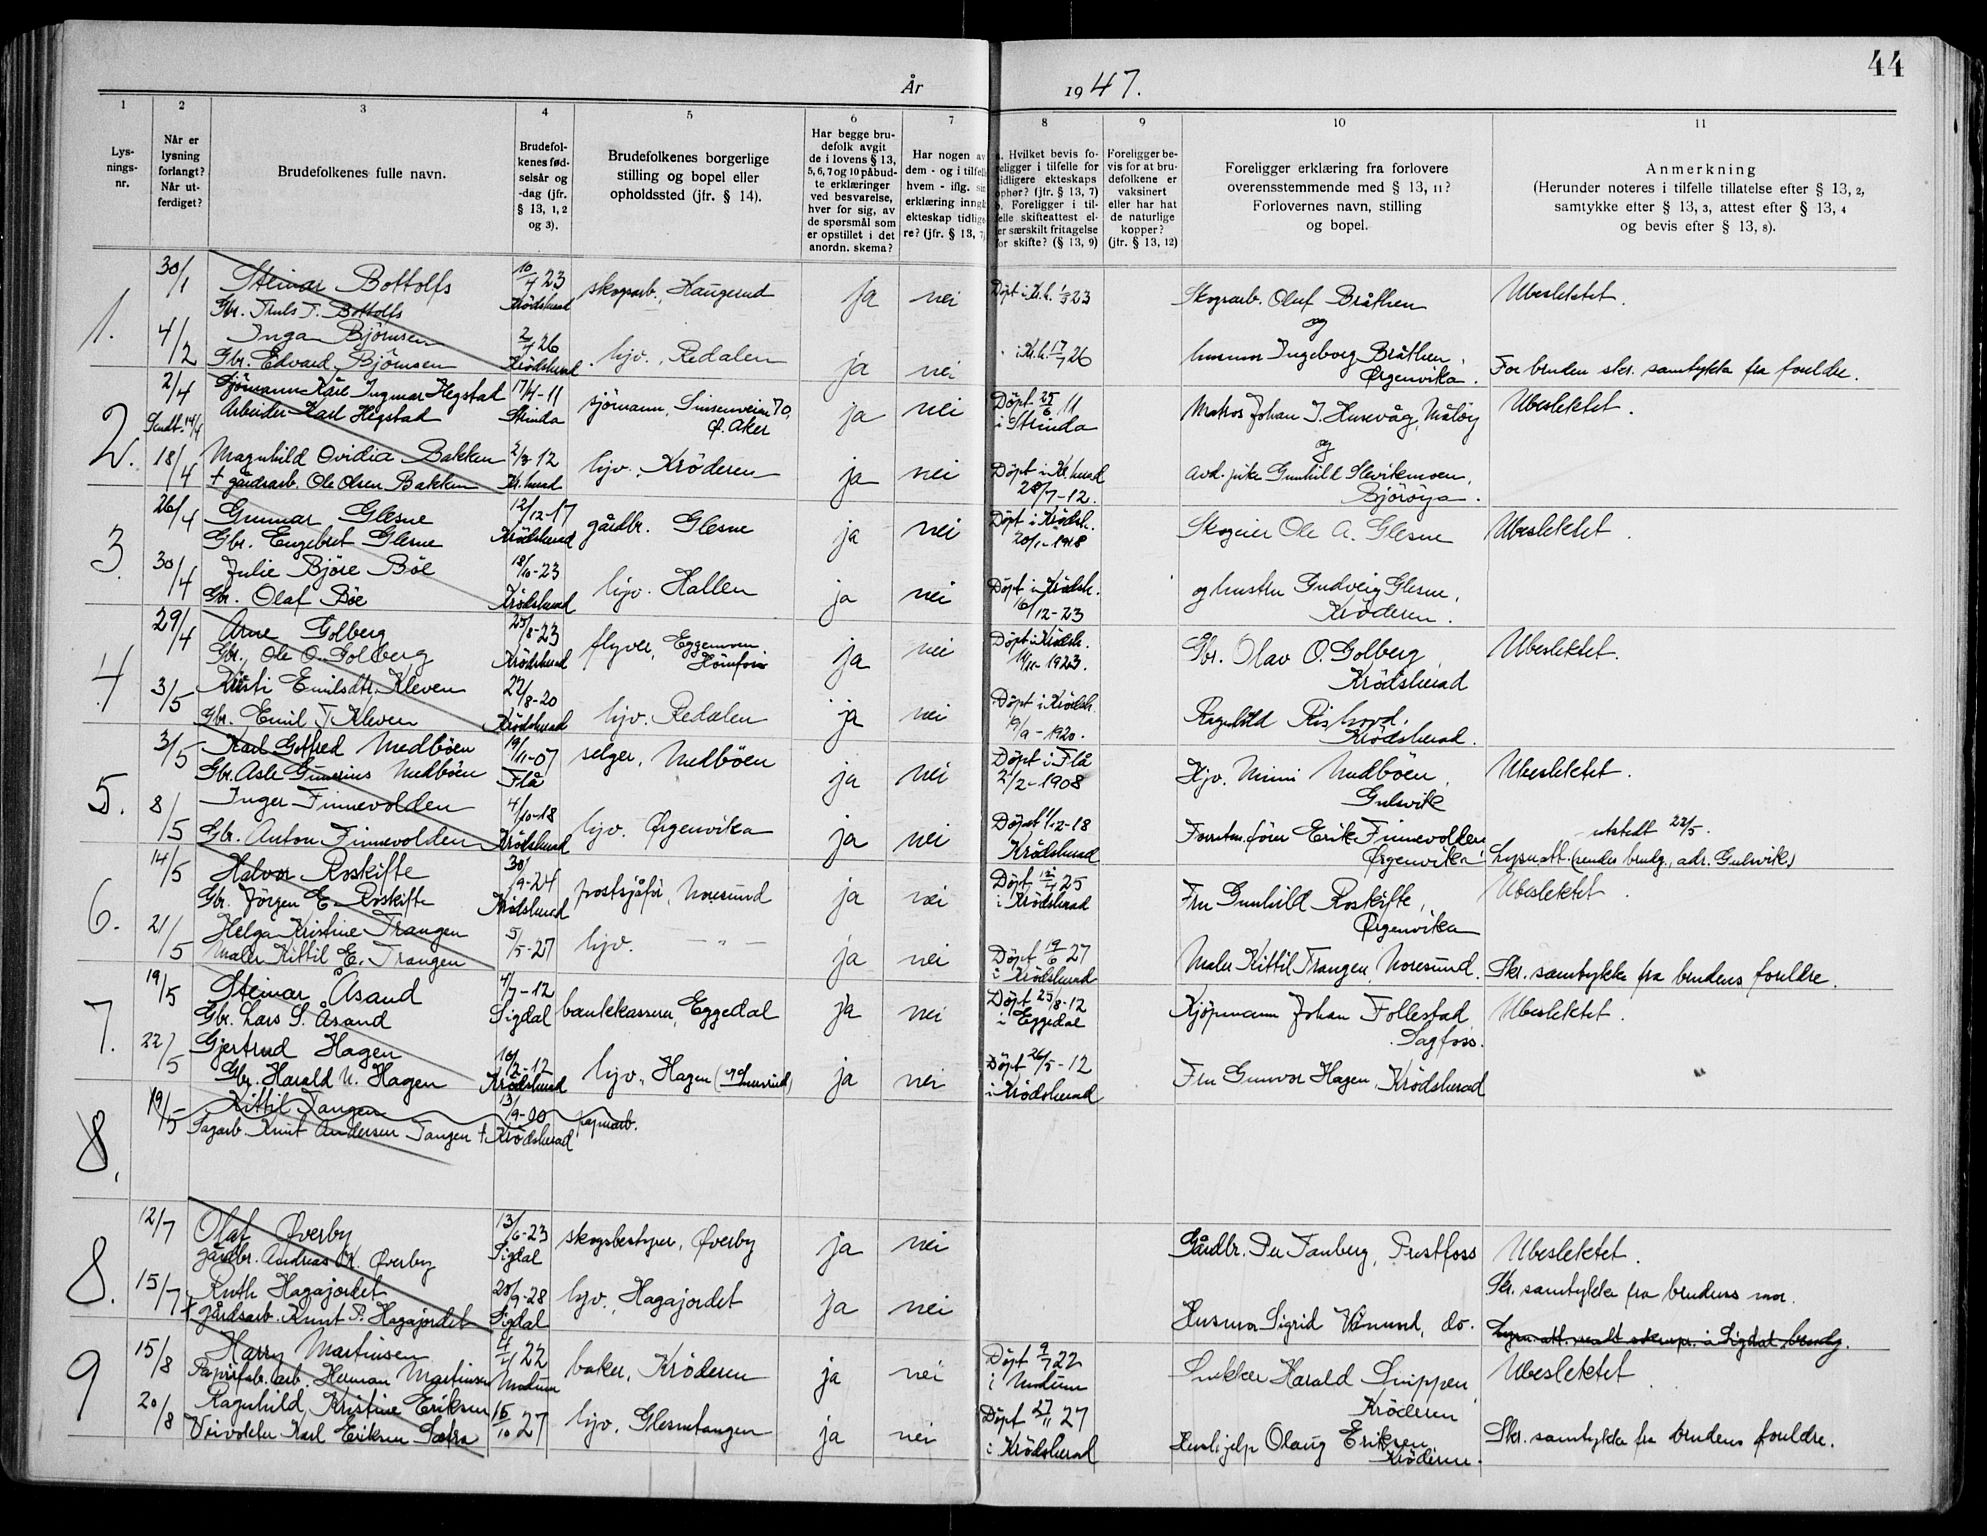 44
År 1947.
1 2 3 4 5 6 7 8 9 10 11
Lysnings-nr.
Når er lysning forlangt? Når utferdiget?
Brudefolkenes fulle navn.
Brudefolkenes fødselsår og -dag (jfr. § 13, 1, 2 og 3).
Brudefolkenes borgerlige stilling og bopel eller opholdssted (jfr. § 14).
Har begge brudefolk avgit de i lovens § 13, 5, 6, 7 og 10 påbudte erklæringer ved besvarelse, hver for sig, av de spørsmål som er opstillet i det anordn. skema?
Har nogen av dem - og i tilfelle hvem - iflg. sin erklæring inngått ekteskap tidligere? (jfr. § 13, 7)
a. Hvilket bevis foreligger i tilfelle for tidligere ekteskaps ophør? (jfr. § 13, 7) b. Foreligger i tilfelle skifteattest eller særskilt fritagelse for skifte? (§ 13, 9)
Foreligger bevis for at brudefolkene er vaksinert eller har hat de naturlige kopper? (jfr. § 13, 12)
Foreligger erklæring fra forlovere overensstemmende med § 13, 11? Forlovernes navn, stilling og bopel.
Anmerkning (Herunder noteres i tilfelle tillatelse efter § 13, 2, samtykke efter § 13, 3, attest efter § 13, 4 og bevis efter § 13, 8).
1. 30/1 Steinar Bottolfs 10/4 23 skogsarb., Haugerud ja nei Døpt i Kr.h. 1/3 23 Skogsarb. Oluf Bråthen Ubeslektet.
Gbr. Truls T. Bottolfs Krödsherad og
4/2 Inga Björnsen 2/4 26 hjv. Redalen ja nei i Kr.h. 17/7 26 husmor Ingeborg Bråthen, For bruden skr. samtykke fra foreldre.
Gbr. Edvard Björnsen Krödsherad Ørgenvika.
2. 2/4 Sjömann Kåre Ingmar Hegstad 17/4-11 sjömann, Sinsenveien 70, ja nei Döpt 25/6 11 Matros Johan J. Husevåg, Måløy Ubeslektet.
Sendt 14/4 Arbeider Karl Hegstad Strinda Ø. Aker i Strinda og
18/4 Magnhild Ovidia Bakken 2/3 12 hjv. Kröderen ja nei Döpt i Kr.herad avd. pike Gunhild Slevikmoen,
+ gårdsarb. Ole Olsen Bakken Kr.herad 28/7-12. Björöya.
3. 26/4 Gunnar Glesne 12/12-17 gårdbr. Glesne ja nei Döpt i Krödsh. Skogeier Ole A. Glesne Ubeslektet.
Gbr. Engebret Glesne Krödsherad 20/1-1918
30/4 Julie Björe Böe 18/10-23 hjv. Hallen ja nei Döpt i Krödsh. og hustru Gudveig Glesne,
Gbr. Olaf Böe Krödsherad 16/12-23 Kröderen.
4. 29/4 Arne Golberg 25/8-23 flyver, Eggemoen ja nei Döpt i Krödsh. Gbr. Olav O. Golberg, Ubeslektet.
Gbr. Ole O. Golberg Krödsherad Hönefoss 14/10-1923. Krödsherad
3/5 Kirsti Emilsdtr. Kleven 22/8-20 hjv. Redalen ja nei Döpt i Krödsh. Ragnhild
Gbr. Emil T Kleven Krödsherad 19/9-1920. Krödsherad.
5. 3/5 Karl Gotfred Medböen 19/11-07 selger, Medböen ja nei Döpt i Flå Hjv. Minni Medböen, Ubeslektet.
Gbr. Asle Gunerius Medböen Flå 2/2-1908 Gulsvik
8/5 Inger Finnevolden 4/10-18 hjv. Ørgenvika ja nei Döpt 1/12-18 Forretn.förer Erik Finnevolden utstedt 22/5.
Gbr. Anton Finnevolden Krödsherad Krödsherad Ørgenvika. Lysn.att. (sendes brudg., adr. Gulsvik)
6. 14/5 Halvor Roskifte 30/9-24 postsjåför, Noresund ja nei Döpt 12/4 25 Fru Gunhild Roskifte, Ubeslektet.
Gbr. Jörgen E. Roskifte Krödsherad i Krödsherad Ørgenvika
21/5 Helga Kristine Trangen 5/5-27 hjv. — " — ja nei Döpt 19/6 27 Maler Kittil Trangen, Noresund. Skr. samtykke fra brudens foreldre.
Maler Kittil E. Trangen i Krödsherad
7. 19/5 Steinar Åsand 4/7-12 bankkasserer, Eggedal ja nei Döpt 25/8-12 Kjöpmann Johan Follestad, Ubeslektet.
Gbr. Lars S. Åsand Sigdal i Eggedal Sagfoss.
22/5 Gjertrud Hagen 10/2-12 hjv., Hagen ja nei Döpt 26/5-12 Fru Gunvor Hagen, Krödsherad
Gbr. Harald N. Hagen Krödsherad i Krödsherad
8. 19/5 Kittil Tangen 13/9-00 papirarb.
Sagarb. Knut Andersen Tangen + Krödsherad
8. 12/7 Olaf Øverby 13/6-23 skogsbestyrer, Øverby ja nei Gårdbr. Per Tanberg, Prestfoss Ubeslektet.
gårdbr. Andreas Kr. Øverby Sigdal
15/7 Ruth Hagajordet 28/9-28 hjv., Hagajordet ja nei Skr. samtykke fra brudens mor.
+ gårdsarb. Knut P. Hagajordet Sigdal Husmor Sigrid Våmund, do.
9. 15/8 Harry Martinsen 4/4 22 baker, Kröderen ja nei Döpt 9/7 22 Snekker Harald Snippen, Ubeslektet.
Papirfab.arb. Herman Martinsen Modum i Modum Kröderen
20/8 Ragnhild Kristine Eriksen 16/10 27 hjv. Glesnetangen ja nei Döpt 27/11 27 Hushjelp Olaug Eriksen, Skr. samtykke fra brudens foreldre.
Veivokter Karl Eriksen Sætra i Krödsherad Kröderen.